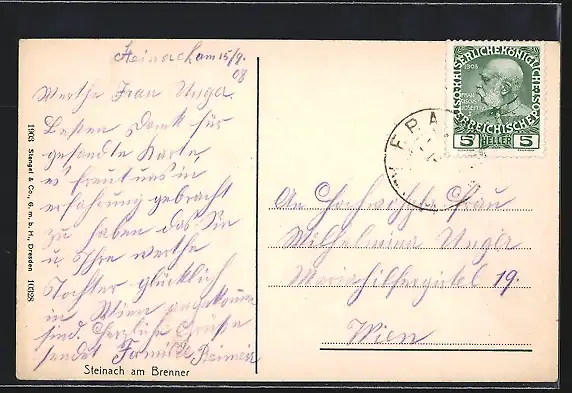 Steinach am 15/9.
08
Werthe Frau Unger.
Besten Dank für
gesandte Karte,
es freut uns in
erfahrung gebracht
zu haben das Sie
u Ihre werthe
Tochter glücklich
in Wien angekommen
sind. Herzliche Grüße
sendet Familie
Steinach am Brenner
1903 Stengel & Co., G. m. b. H., Dresden 16328
KAISERLICHEKÖNIGLICHE ÖSTERREICHISCHE POST
1908
FRANZ JOSEF I
5 HELLER 5
An Frau
Wilhelmina Unger
Mariahilfergürtel 19.
Wien